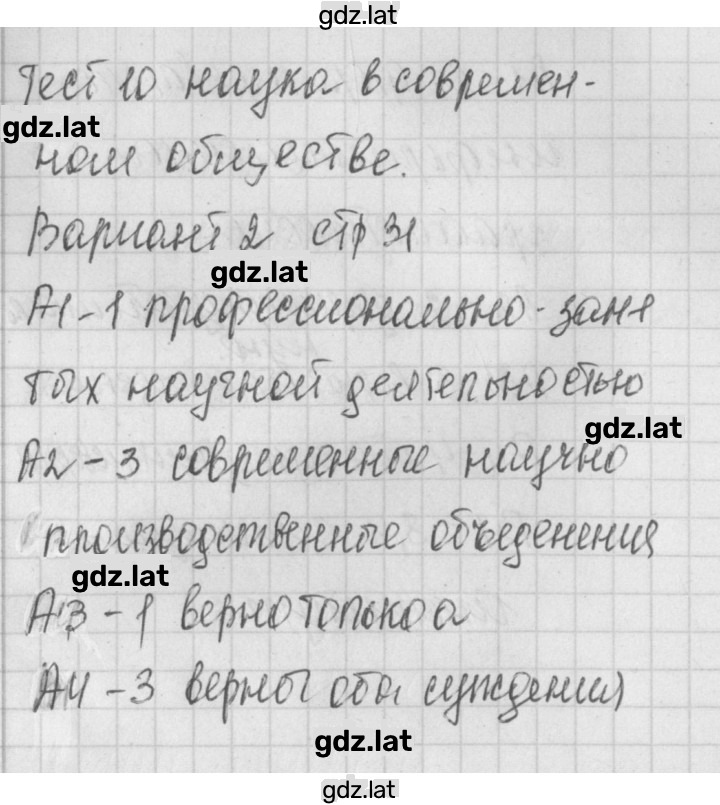 gdz.lat
Тест 10 наука в современ-
gdz.lat
ном обществе.
Вариант 2 стр 31
gdz.lat
А1-1 профессионально-заня
тых научной деятельностью
gdz.lat
А2-3 современные научно
производственные объеденения
gdz.lat
А3-1 верно только а
А4-3 верны оба суждения
gdz.lat
gdz.lat